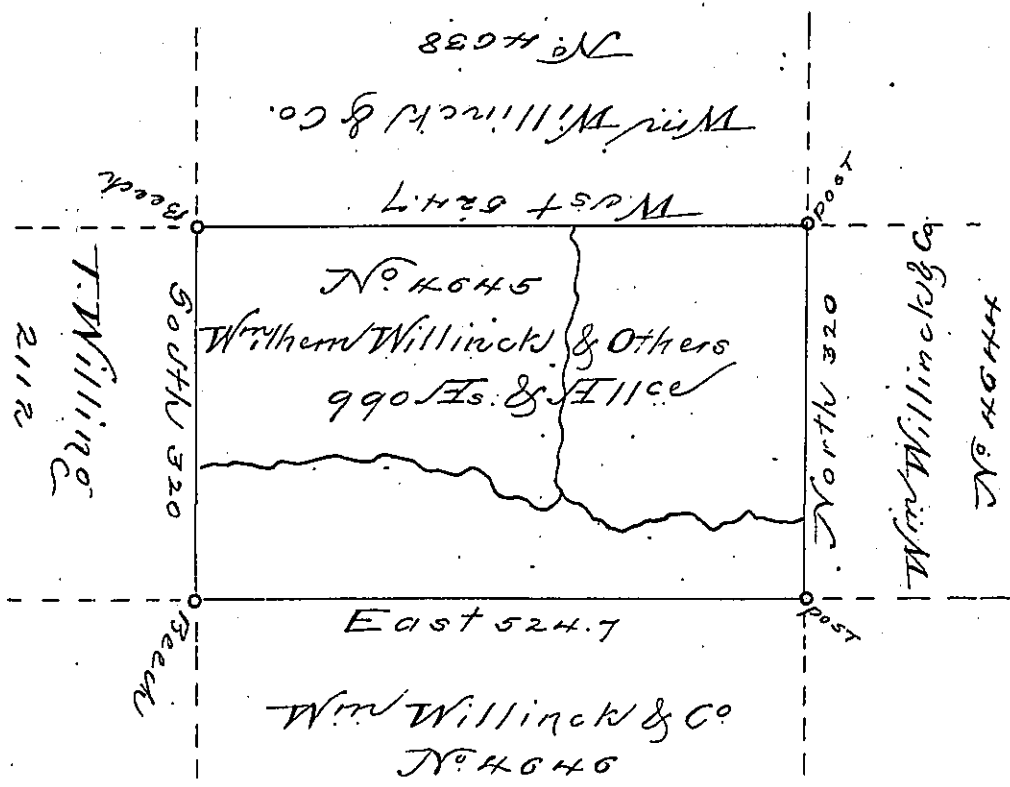 No. 4638
Wm Willinck & Co.
West 524.7
Beech
post
No. 4645
Wilhem Willinck & Others
990 As. & Allce
South 320
T. Willing
2112
North 320
Wm Willinck & Co.
No. 4644
Beech
post
East 524.7
Wm Willinck & Co
No. 4646